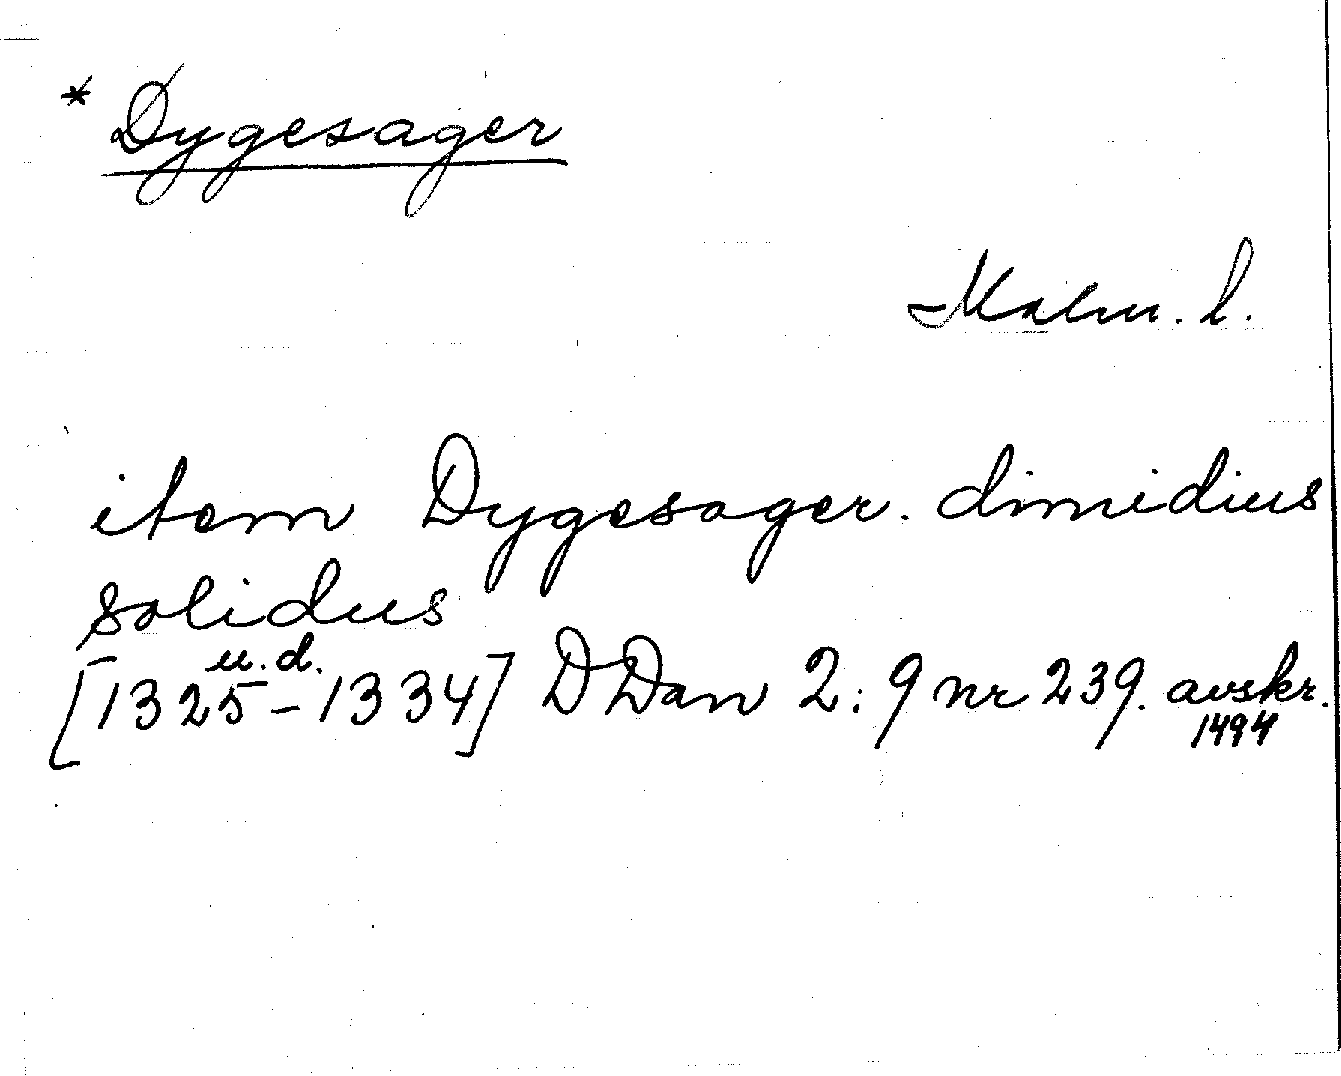 * Dygesager
Malm. l.
item Dygesager. dimidius
solidus
u. d.
[1325-1334] DDan 2: 9 nr 239. avskr.
1494